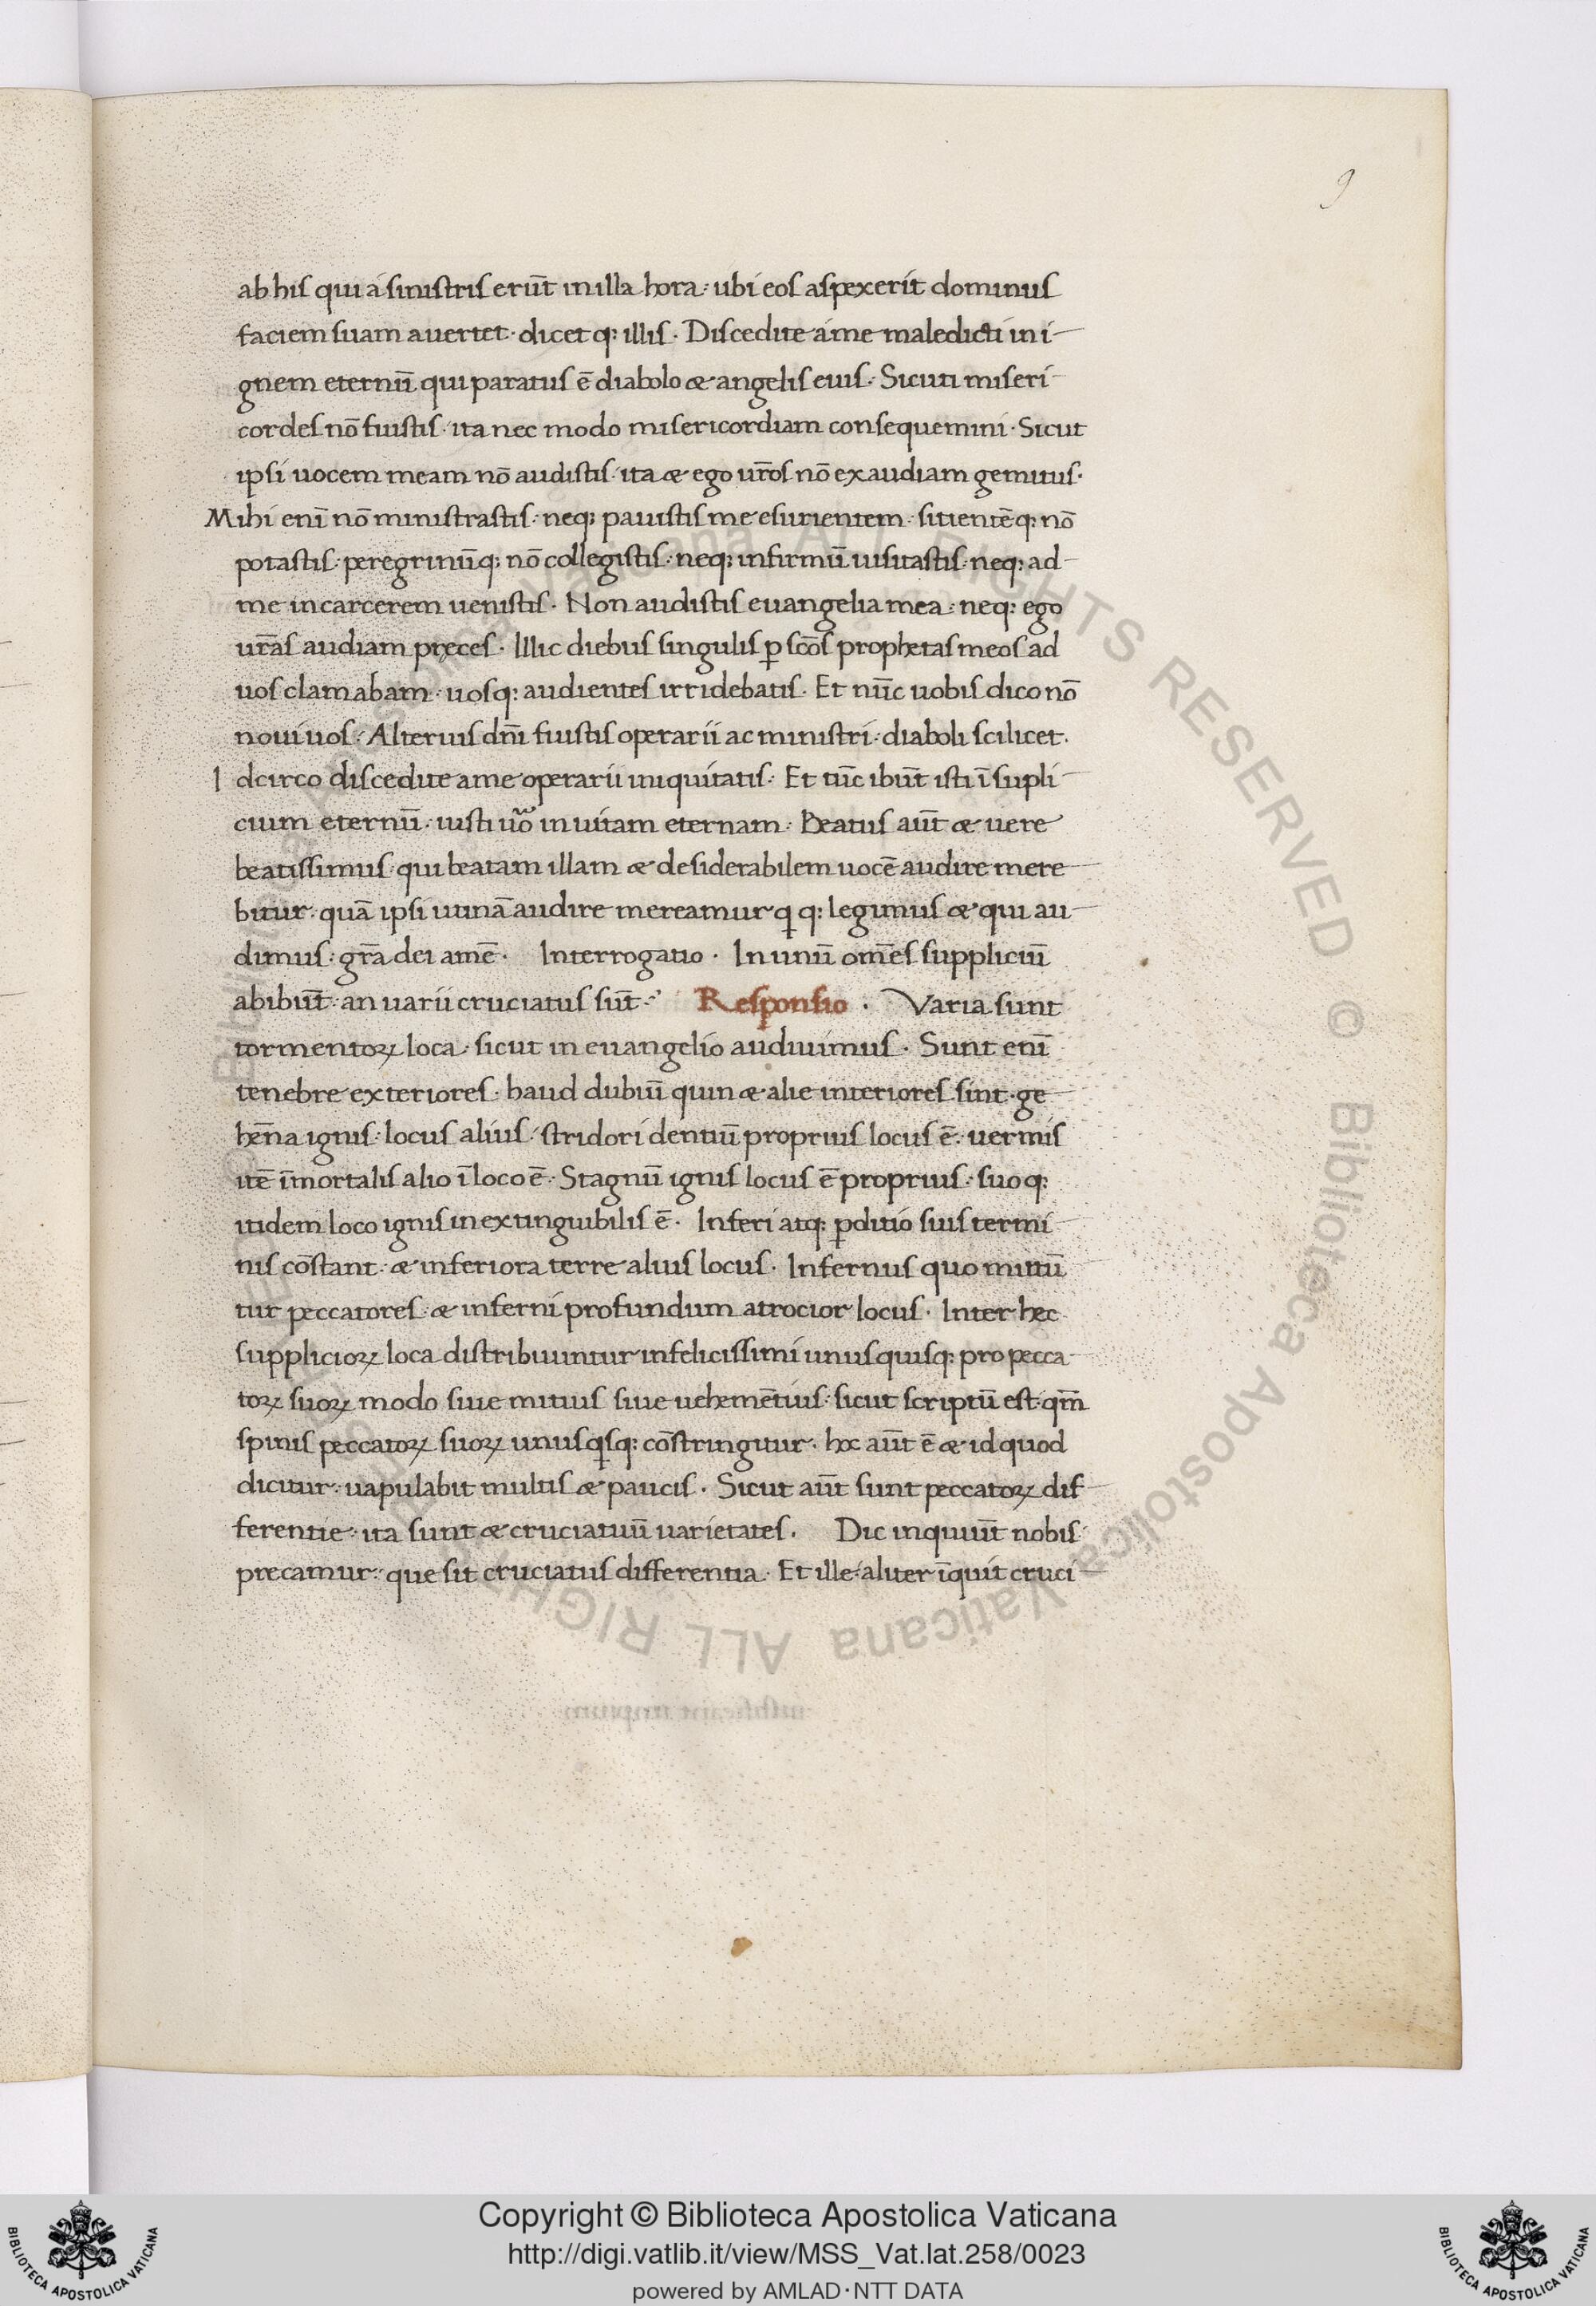 9
ab his qui á sinistris erūt in illa hora: ubi eos aspexerit dominus
faciem suam auertet· dicet q: illis· Discedite á me maledicti in i-
gnem eternū qui paratus ē diabolo & angelis eius: Sicuti miseri
cordes nō fuistis· ita nec modo misericordiam consequemini· Sicut
ipsi uocem meam nō audistis· ita & ego ur̄os nō exaudiam gemitus·
Mihi enī nō ministrastis: neq: pauistis me esurientem: sitientēq: nō
potastis: peregrinūq: nō collegistis: neq: infirmū uisitastis· neq: ad-
me in carcerem uenistis· Non audistis euangelia mea: neq: ego
ur̄as audiam pręces· Illic diebus singulis ꝑ sc̄os prophetas meos ad
uos clamabam· uosq: audientes irridebatis· Et nūc uobis dico nō
noui uos: Alterius dn̄i fuistis operarii ac ministri: diaboli scilicet·
Idcirco discedite a me operarii iniquitatis: Et tūc ibūt isti ī supli
cium eternū: iusti u̅o in uitam eternam: Beatus aūt & uere
beatissimus· qui beatam illam & desiderabilem uocē audire mere
bitur: quā ipsi utinā audire mereamur q q: legimus & qui au-
dimus: gr̄a dei amē· Interrogatio· In unū om̄es suppliciū
abibūt: an uarii cruciatus sūt: Responsio· Varia sunt
tormentoꝝ loca· sicut in euangelio audiuimus· Sunt enī
tenebre exteriores: haud dubiū quin & alie interiores sint· ge
hēna ignis: locus alius: stridori dentiū proprius locus ē: uermis
itē īmortalis alio ī loco ē: Stagnū ignis locus ē proprius: suo q:
itidem loco ignis inextinguibilis ē· Inferi atq: ꝑditio suis termi
nis cōstant: & inferiora terre alius locus· Infernus quo mittū
tur peccatores: & inferni profundum atrocior locus· Inter hęc
supplicioꝝ loca distribuuntur infelicissimi unusquisq: pro pecca
toꝝ suoꝝ modo siue mitius siue uehemētius: sicut scriptū est· qm̄
spinis peccatoꝝ suoꝝ unusqisq: cōstringitur· hoc aūt ē & id quod
dicitur: uapulabit multis & paucis· Sicut aūt sunt peccatoꝝ dif
ferentie: ita sunt & cruciatuū uarietates· Dic inquiūt nobis
precamur: que sit cruciatus differentia· Et ille: aliter īquit cruci
Copyright © Biblioteca Apostolica Vaticana
http://digi.vatlib.it/view/MSS_Vat.lat.258/0023
powered by AMLAD·NTT DATA